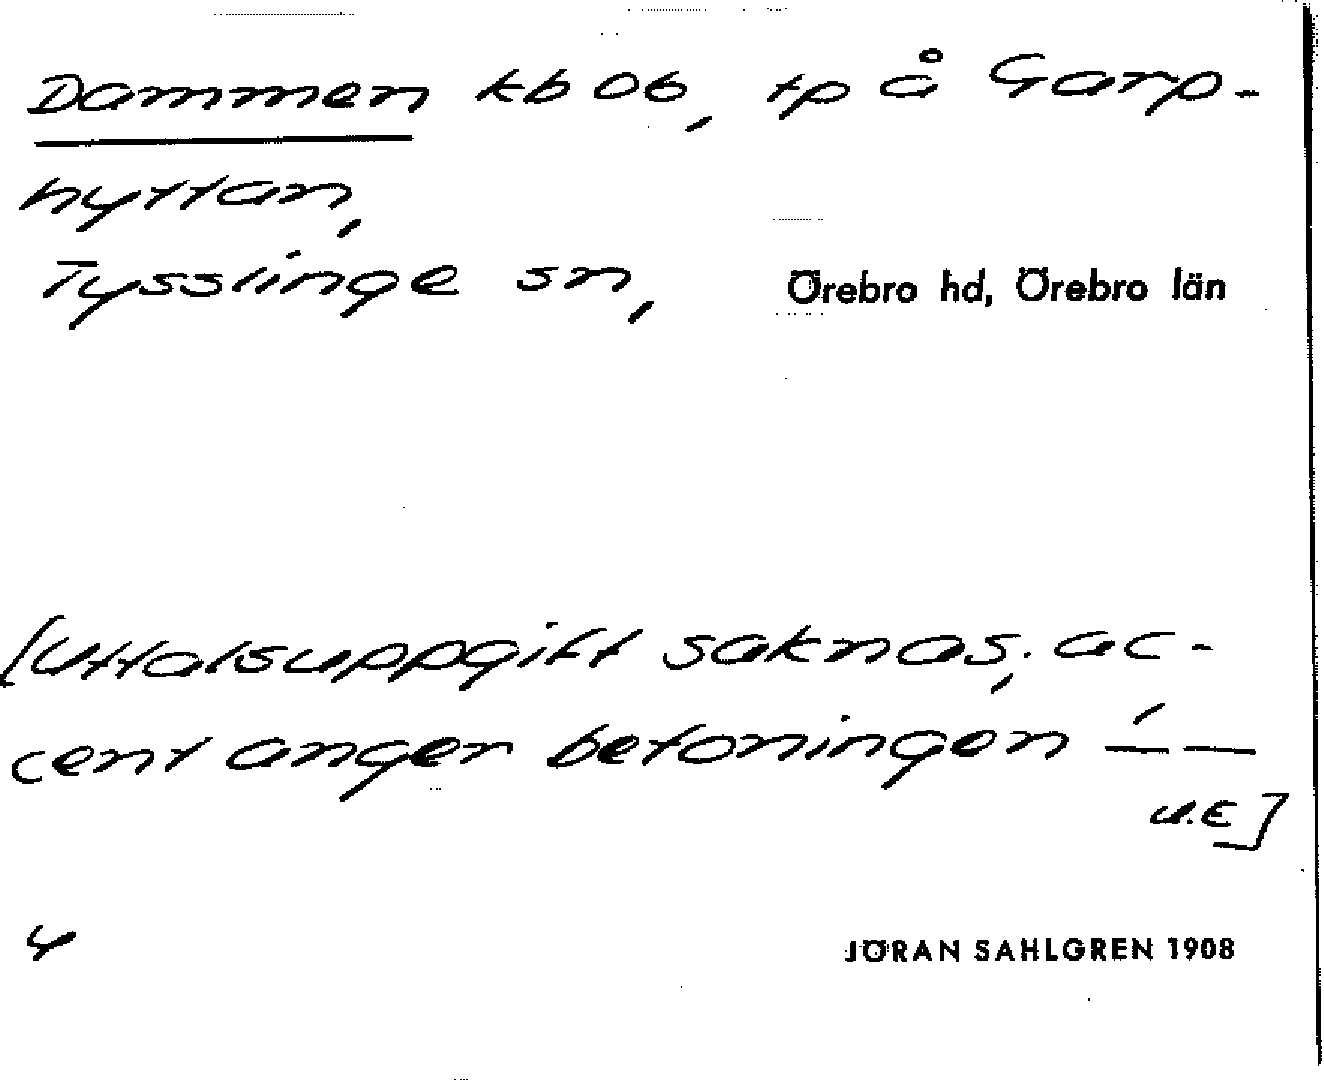 Dammen kb 06, tp å Garp-
hyttan,
Tysslinge sn, Örebro hd, Örebro län
[Uttalsuppgift saknas; ac-
cent anger betoningen –́ –
U.E]
4 JÖRAN SAHLGREN 1908